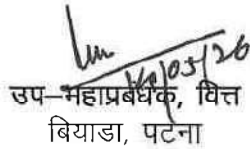 14/05/26
उप–महाप्रबंधक, वित्त
बियाडा, पटना